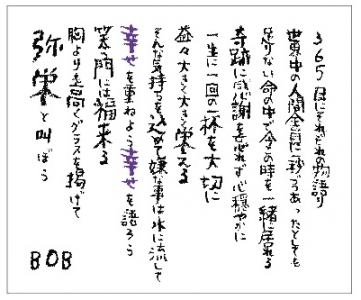 365日にそれぞれの物語り
世界中の人間全員に秒であったとしても
足りない命の中で今この時を一緒に居れる
奇跡に感謝を忘れず心穏やかに
一生に一回の一杯を大切に
益々大きく大きく栄える
そんな気持ちを込めて嫌な事は水に流して
幸せを重ねよう幸せを語ろう
笑う門には福来る
胸よりも高くグラスを掲げて
弥栄と叫ぼう
BOB